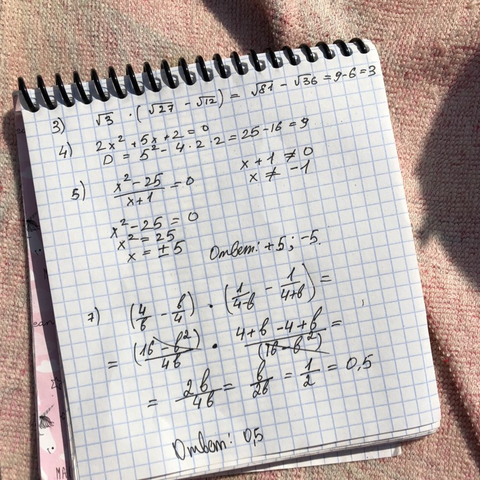 3) √3 · (√27 - √12) = √81 - √36 = 9-6 = 3
4) 2x² + 5x + 2 = 0
D = 5² - 4 · 2 · 2 = 25 - 16 = 9
5) (x² - 25)/(x + 1) = 0 x + 1 ≠ 0
x ≠ -1
x² - 25 = 0
x² = 25
x = ± 5 Ответ: +5; -5.
7) (4/b - b/4) · (1/(4-b) - 1/(4+b)) =
= (16 - b²)/4b · (4+b-4+b)/(16-b²) =
= 2b/4b = b/2b = 1/2 = 0,5
Ответ: 0,5